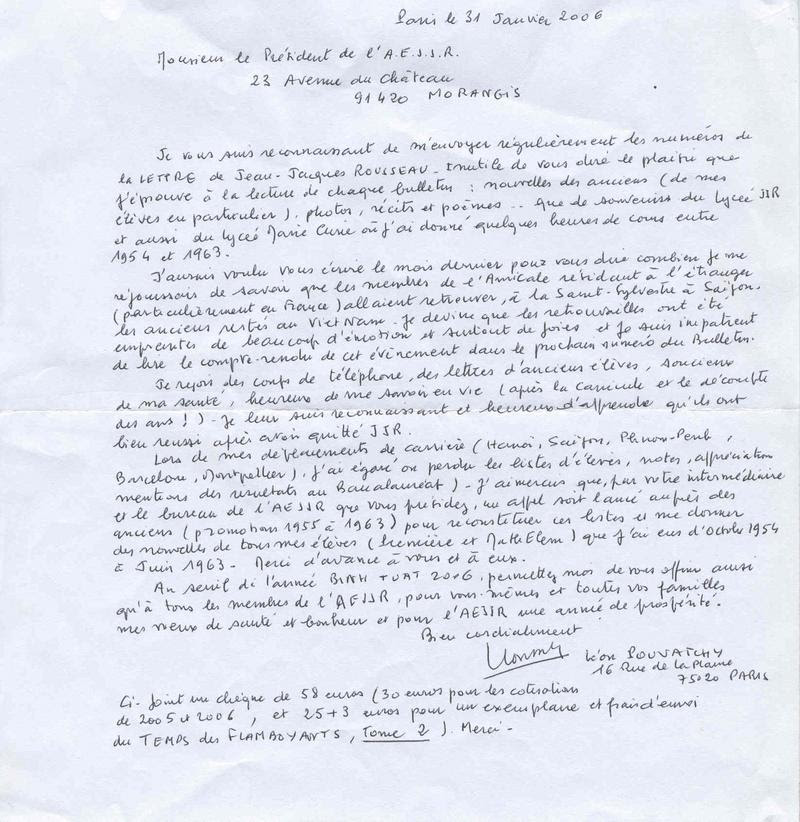 Paris le 31 Janvier 2006
Monsieur le Président de l'A.E.J.J.R.
23 Avenue du Château
91420 MORANGIS
Je vous suis reconnaissant de m'envoyer régulièrement les numéros de
la LETTRE de Jean-Jacques ROUSSEAU - Inutile de vous dire le plaisir que
j'éprouve à la lecture de chaque bulletin : nouvelles des anciens (de mes
élèves en particulier), photos, récits et poèmes .. que de souvenirs du Lycée JJR
et aussi du lycée Marie Curie où j'ai donné quelques heures de cours entre
1954 et 1963.
J'aurais voulu vous écrire le mois dernier pour vous dire combien je me
réjouissais de savoir que les membres de l'Amicale résidant à l'étranger
(particulièrement en France) allaient retrouver, à la Saint-Sylvestre à Saïgon,
les anciens restés au Viet Nam - Je devine que les retrouvailles ont été
empreintes de beaucoup d'émotion et surtout de joies et je suis impatient
de lire le compte-rendu de cet évènement dans le prochain numéro du Bulletin.
Je reçois des coups de téléphone, des lettres d'anciens élèves, soucieux
de ma santé, heureux de me savoir en vie (après la canicule et le décompte
des ans !) - Je leur suis reconnaissant et heureux d'apprendre qu'ils ont
bien réussi après avoir quitté JJR.
Lors de mes déplacements de carrière (Hanoi, Saïgon, Phnom-Penh,
Barcelone, Montpellier), j'ai égaré ou perdu les listes d'élèves, notes, appréciation
mentions des résultats au Baccalauréat) - J'aimerais que, par votre intermédiaire
et le bureau de l'AEJJR que vous présidez, un appel soit lancé auprès des
anciens (promotions 1955 à 1963) pour reconstituer ces listes et me donner
des nouvelles de tous mes élèves (Première et MathElem) que j'ai eus d'Octobre 1954
à Juin 1963 - Merci d'avance à vous et à eux.
Au seuil de l'année BINH TUAT 2006, permettez moi de vous offrir ainsi
qu'à tous les membres de l'AEJJR, pour vous-mêmes et toutes vos familles
mes vœux de santé et bonheur et pour l'AEJJR une année de prospérité.
Bien cordialement
Léon POUVATCHY
16 Rue de la Plaine
75020 PARIS
Ci-Joint un chèque de 58 euros (30 euros pour les cotisation
de 2005 et 2006, et 25+3 euros pour un exemplaire et frais d'envoi
du TEMPS des FLAMBOYANTS, Tome 2 ). Merci -